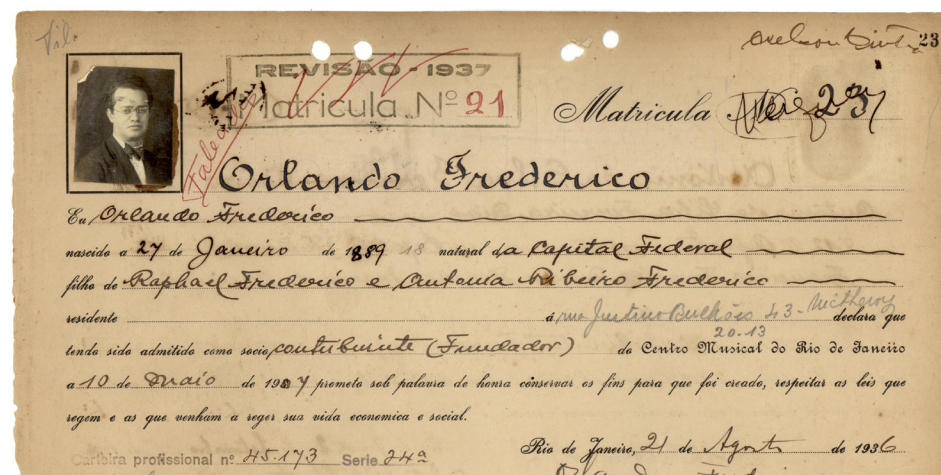 23
REVISÃO - 1937
Matricula Nº 21
Matricula 23
Orlando Frederico
Eu Orlando Frederico
nascido a 27 de Janeiro de 1889 natural da Capital Federal
filho de Raphael Frederico e Antonia Ribeiro Frederico
residente á rua Justino Bulhões 43 - Nictheroy declara que
20-13
tendo sido admitido como socio contribuinte (Fundador) do Centro Musical do Rio de Janeiro
a 10 de Maio de 1907 prometo sob palavra de honra conservar os fins para que foi creado, respeitar as leis que
regem e as que venham a reger sua vida economica e social.
Rio de Janeiro, 21 de Agosto de 1936
Carteira profissional nº 45.173 Serie 24ª